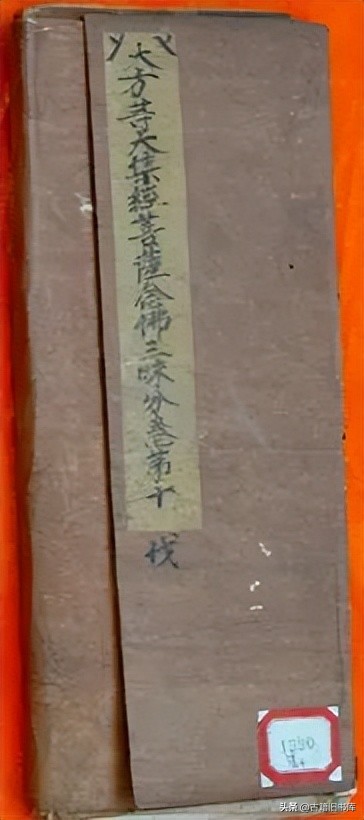 大方等大集經菩薩念佛三昧分卷第十
伐
1350
头条@古籍旧书库